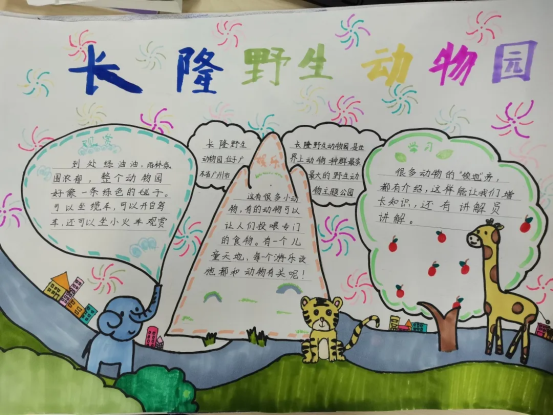 长隆野生动物园
观赏
到处绿油油,雨林氛
围浓郁,整个动物园
好像一条绿色的毯子。
可以坐缆车,可以开自驾
车,还可以坐小火车观赏
长隆野生
动物园位于广
东省广州市
长隆野生动物园是世
界上动物种群最多
最大的野生动
物主题公园
娱乐
这有很多小动
物,有的动物可以
让人们投喂专门
的食物。有一个儿
童天地,每个游乐设
施都和动物有关呢!
学习
很多动物的
都有介绍,这样能让我们增
长知识,还有讲解员
讲解。